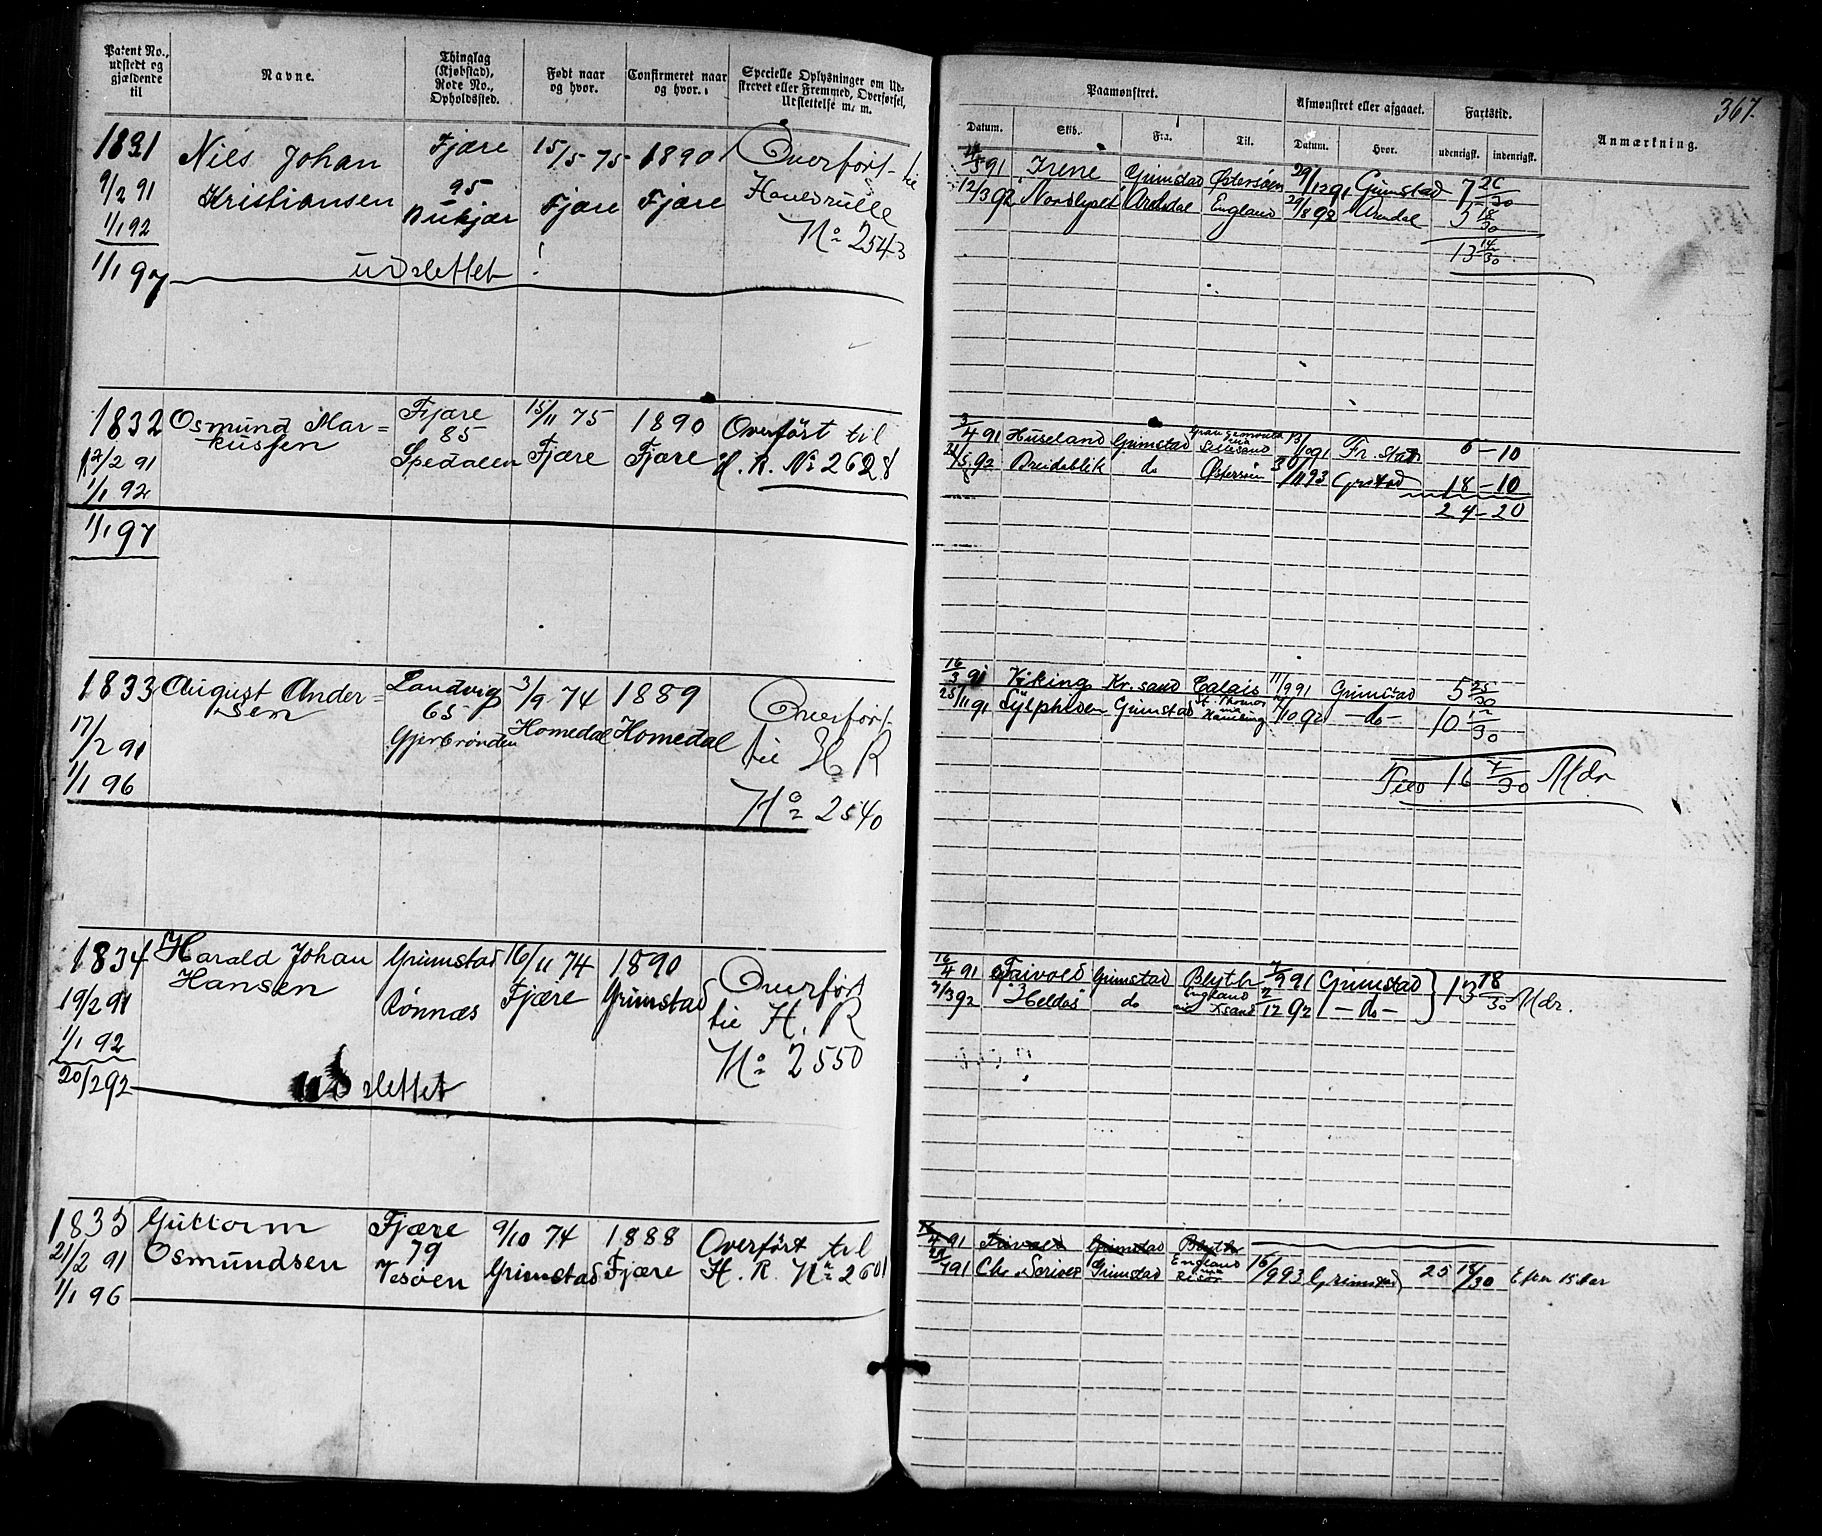 Patent No., udstedt og gjældende til
Navne.
Thinglag (Kjøbstad), Rode No., Opholdssted.
Født naar og hvor.
Confirmeret naar og hvor.
Specielle Oplysninger om Udskrevet eller Fremmed, Overførsel, Udslettelse m. m.
Paamønstret.
Datum.
Skib.
Fra.
Til.
Afmønstret eller afgaaet.
Datum.
Hvor.
Fartstid.
udenrigsk.
indenrigsk.
Anmærkning.
367.
1831 Niels Johan Fjære 15/5 75 1890 Overført til
9/2 91 Kristiansen 95 Fjære Fjære Hovedrulle
1/1 92 No 2543
1/1 97 udslettet
91 Irene Grimstad Østersøen 29/12 91 Grimstad 7 26/30
12/3 92 Arendal England 29/8 92 Arendal 5 18/30
13 14/30
1832 Osmund Mar= Fjære 15/11 75 1890 Overført til
kussen 85
12/2 91 Spedalen Fjære Fjære H. R. No 2628
1/1 92
1/1 97
3/4 91 Huseland Grimstad 91 Fr. stad 6 - 10
92 Breidablik do Østersøen 93 Grstad 18 - 10
24 - 20
1833 August Ander= Landvig 3/9 74 1889 Overført
sen 65
17/2 91 Homedal Homedal til H R
1/1 96 No 2540
16/3 91 Viking Kr. sand Calais 11/9 91 Grimstad 5 25/30
25/11 91 Sylphiden Grimstad St. Thomas 92 - do - 10
16 7/30 Mdr
1834 Harald Johan Grimstad 16/11 74 1890 Overført
Hansen
19/2 91 Rønnæs Fjære Grimstad til H. R
1/1 92 No 2550
20/2 92 udslettet
16/4 91 Grimstad Blyth 91 Grimstad 13 18/30 Mdr.
92 do England 2/12 92 - do -
1835 Guttorm Fjære 9/10 74 1888 Overført til
21/2 91 Osmundsen 79
Vesøen Grimstad Fjære H. R. No 2601
1/1 96
16/4 91 Grimstad Blyth
91 Chr. Scriver Grimstad England 16/9 93 Grimstad 25 18/30